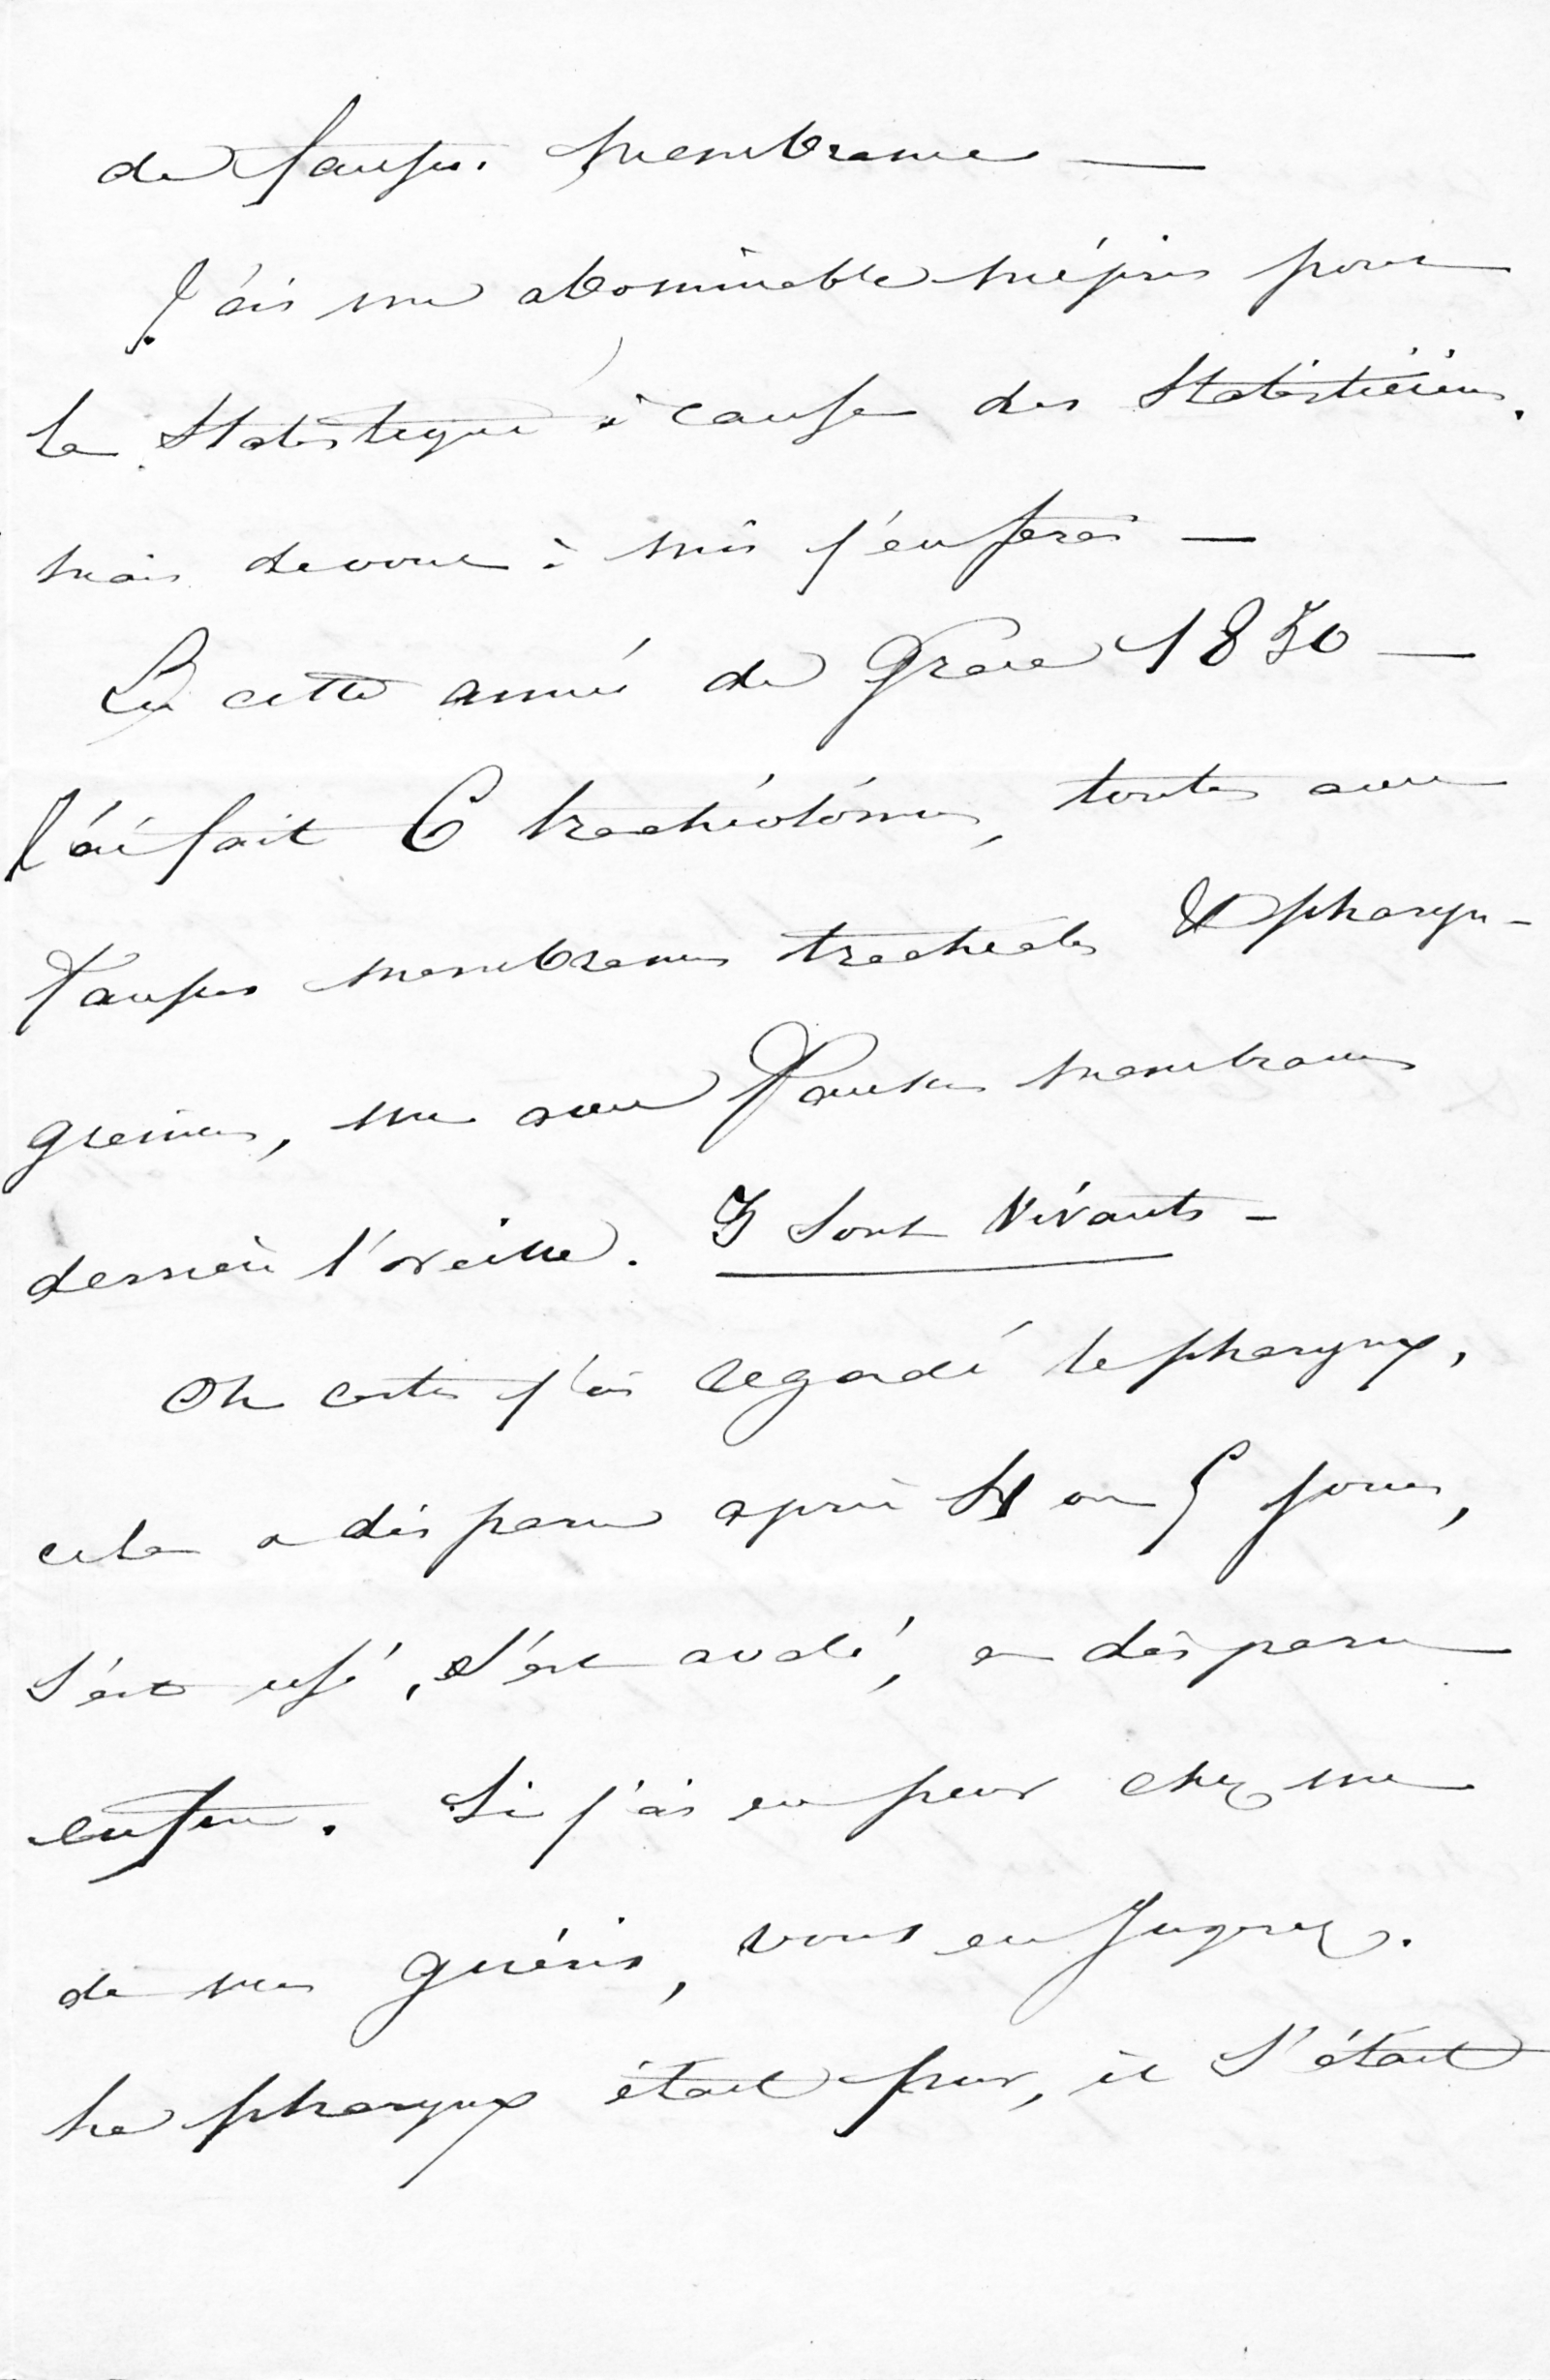 de fausses membranes —
J'ai un abominable mépris pour
la Statistique à cause des Statisticiens.
mais de vous à moi j'en ferai —
En cette année de Grace 1850 —
J'ai fait 6 trachéotomies, toutes avec
Fausses membranes trachéales & pharyn-
giennes, une avec Fausses membranes
derrière l'oreille. 3 sont Vivants —
Oh certes j'ai regardé le pharynx,
cela a disparu après 4 ou 5 jours,
s'est usé, s'est avalé, a disparu
enfin. Si j'ai eu peur chez un
de mes guéris, vous en jugerez.
Le pharynx était pur, il s'était